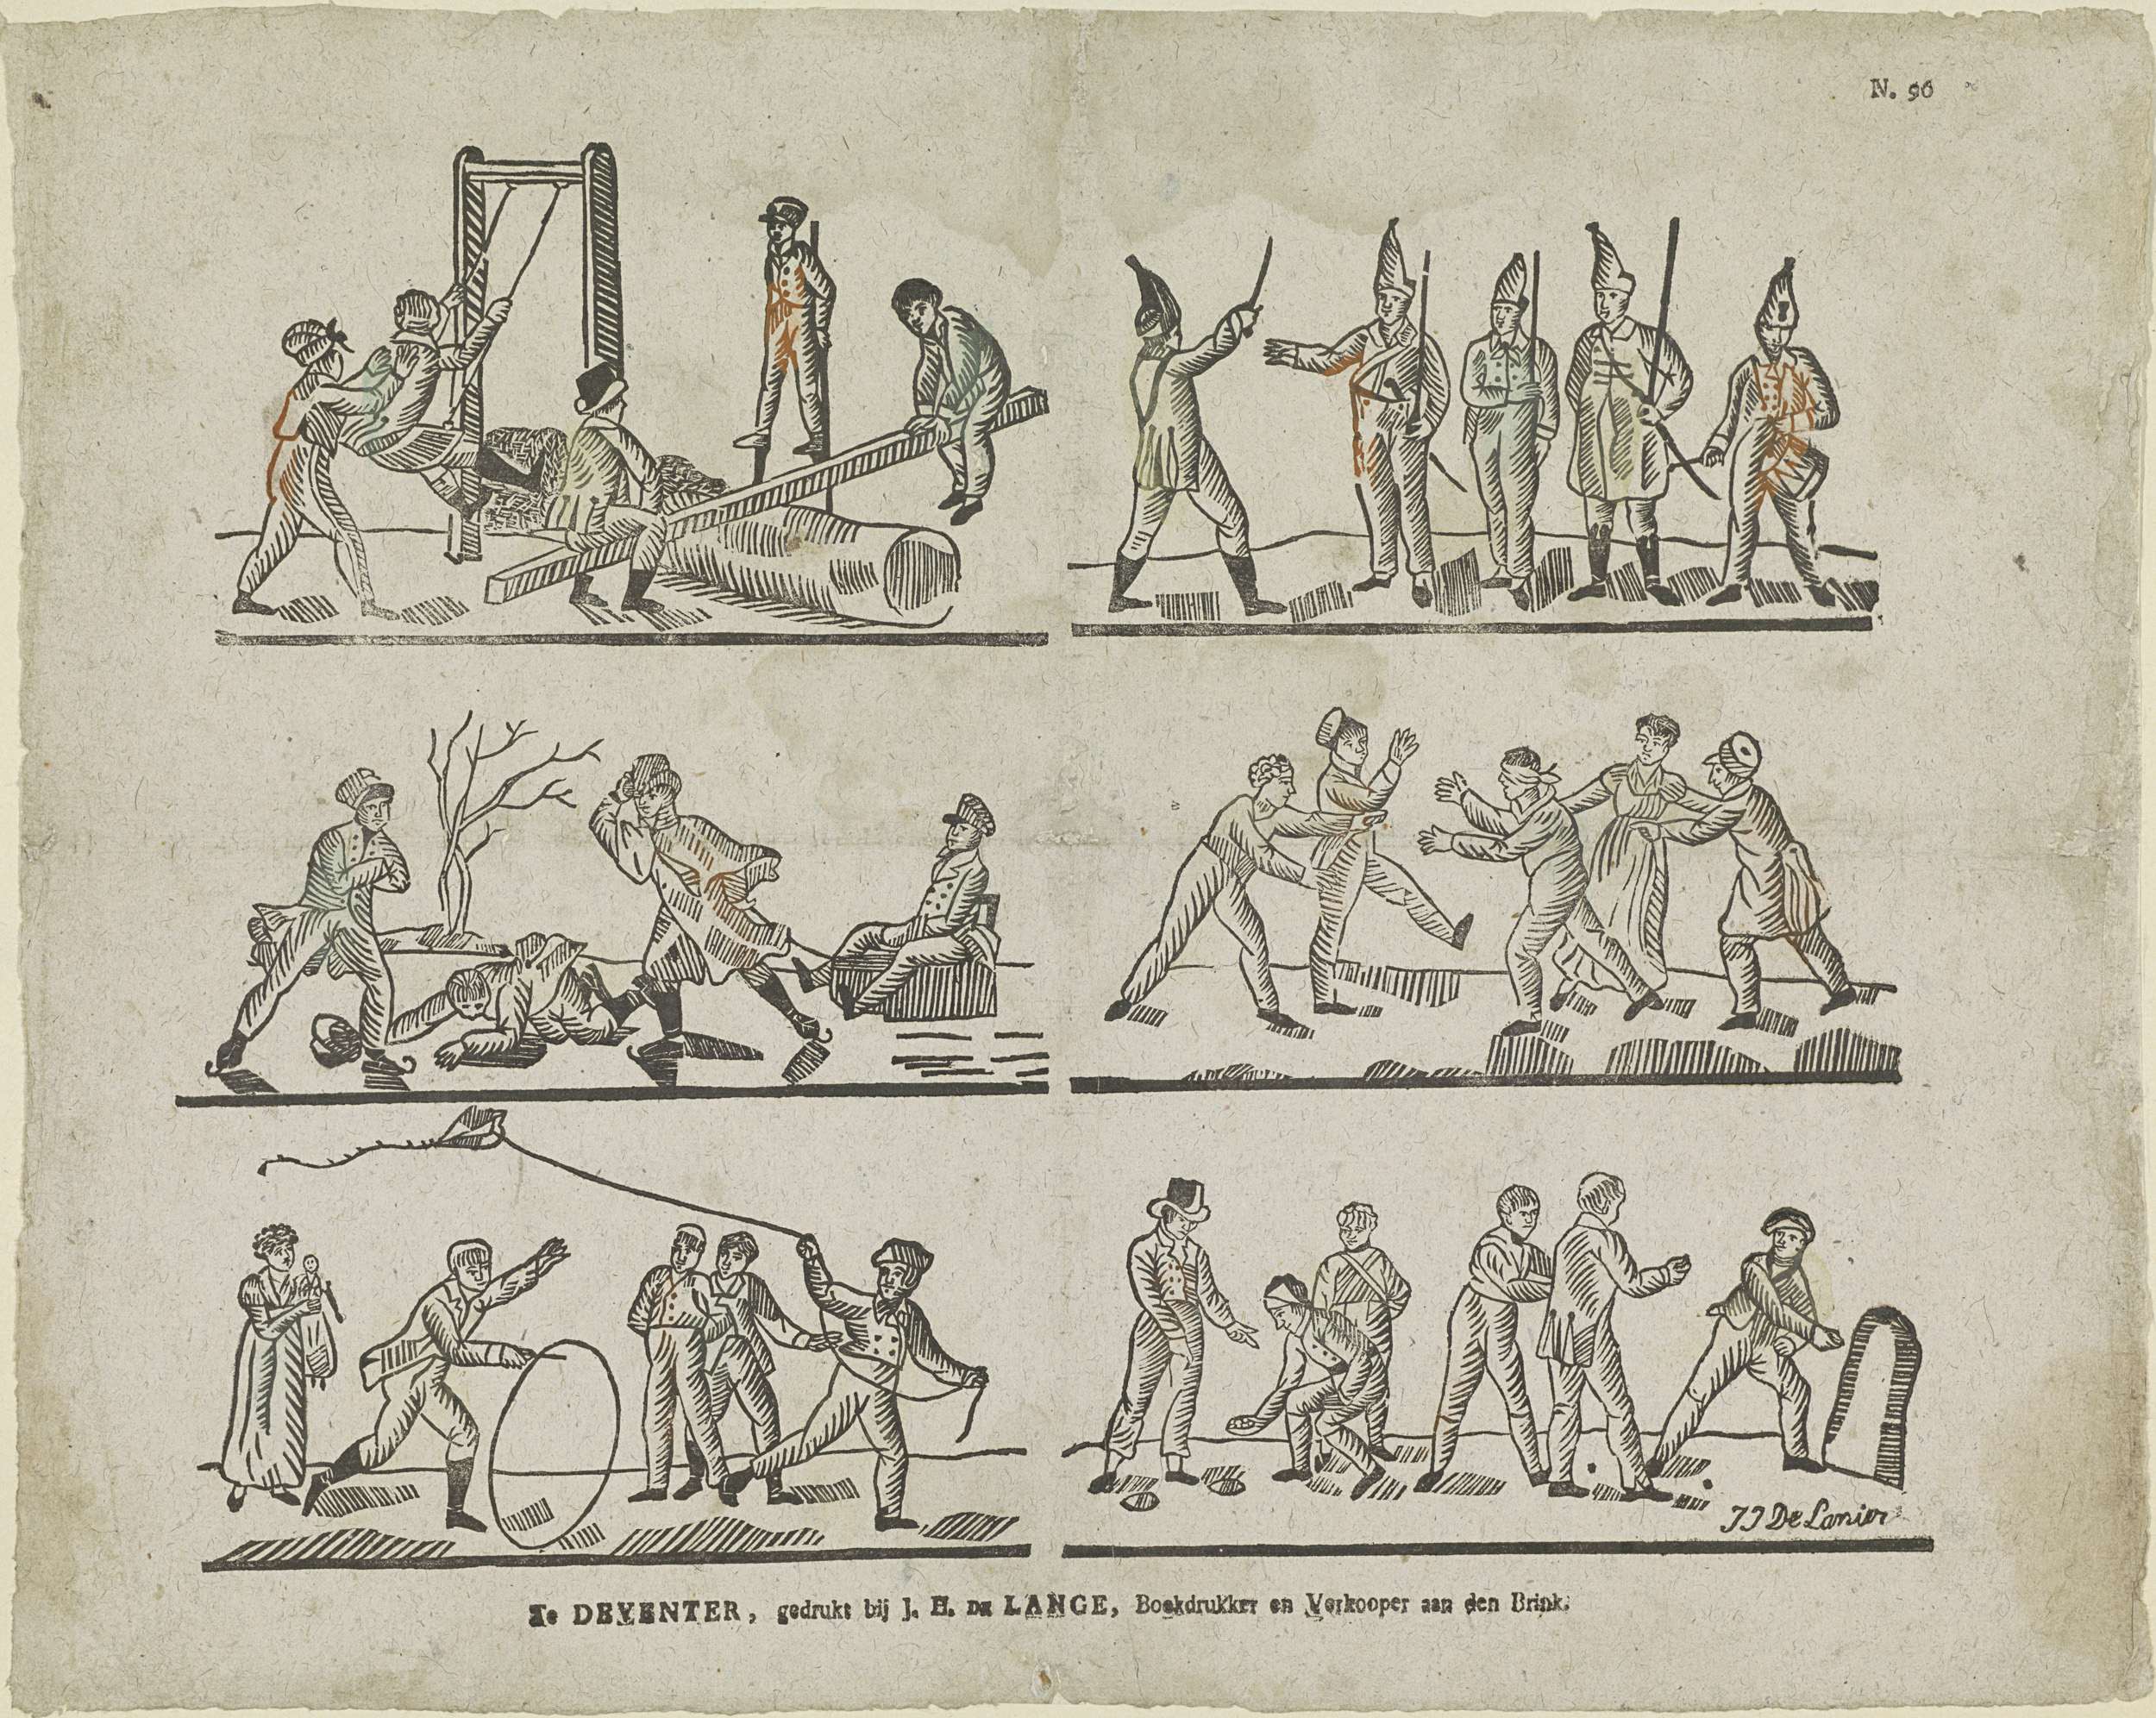 N. 96
JJ De Lanier
Te DEVENTER, gedrukt bij J. H. DE LANGE, Boekdrukker en Verkooper aan den Brink.